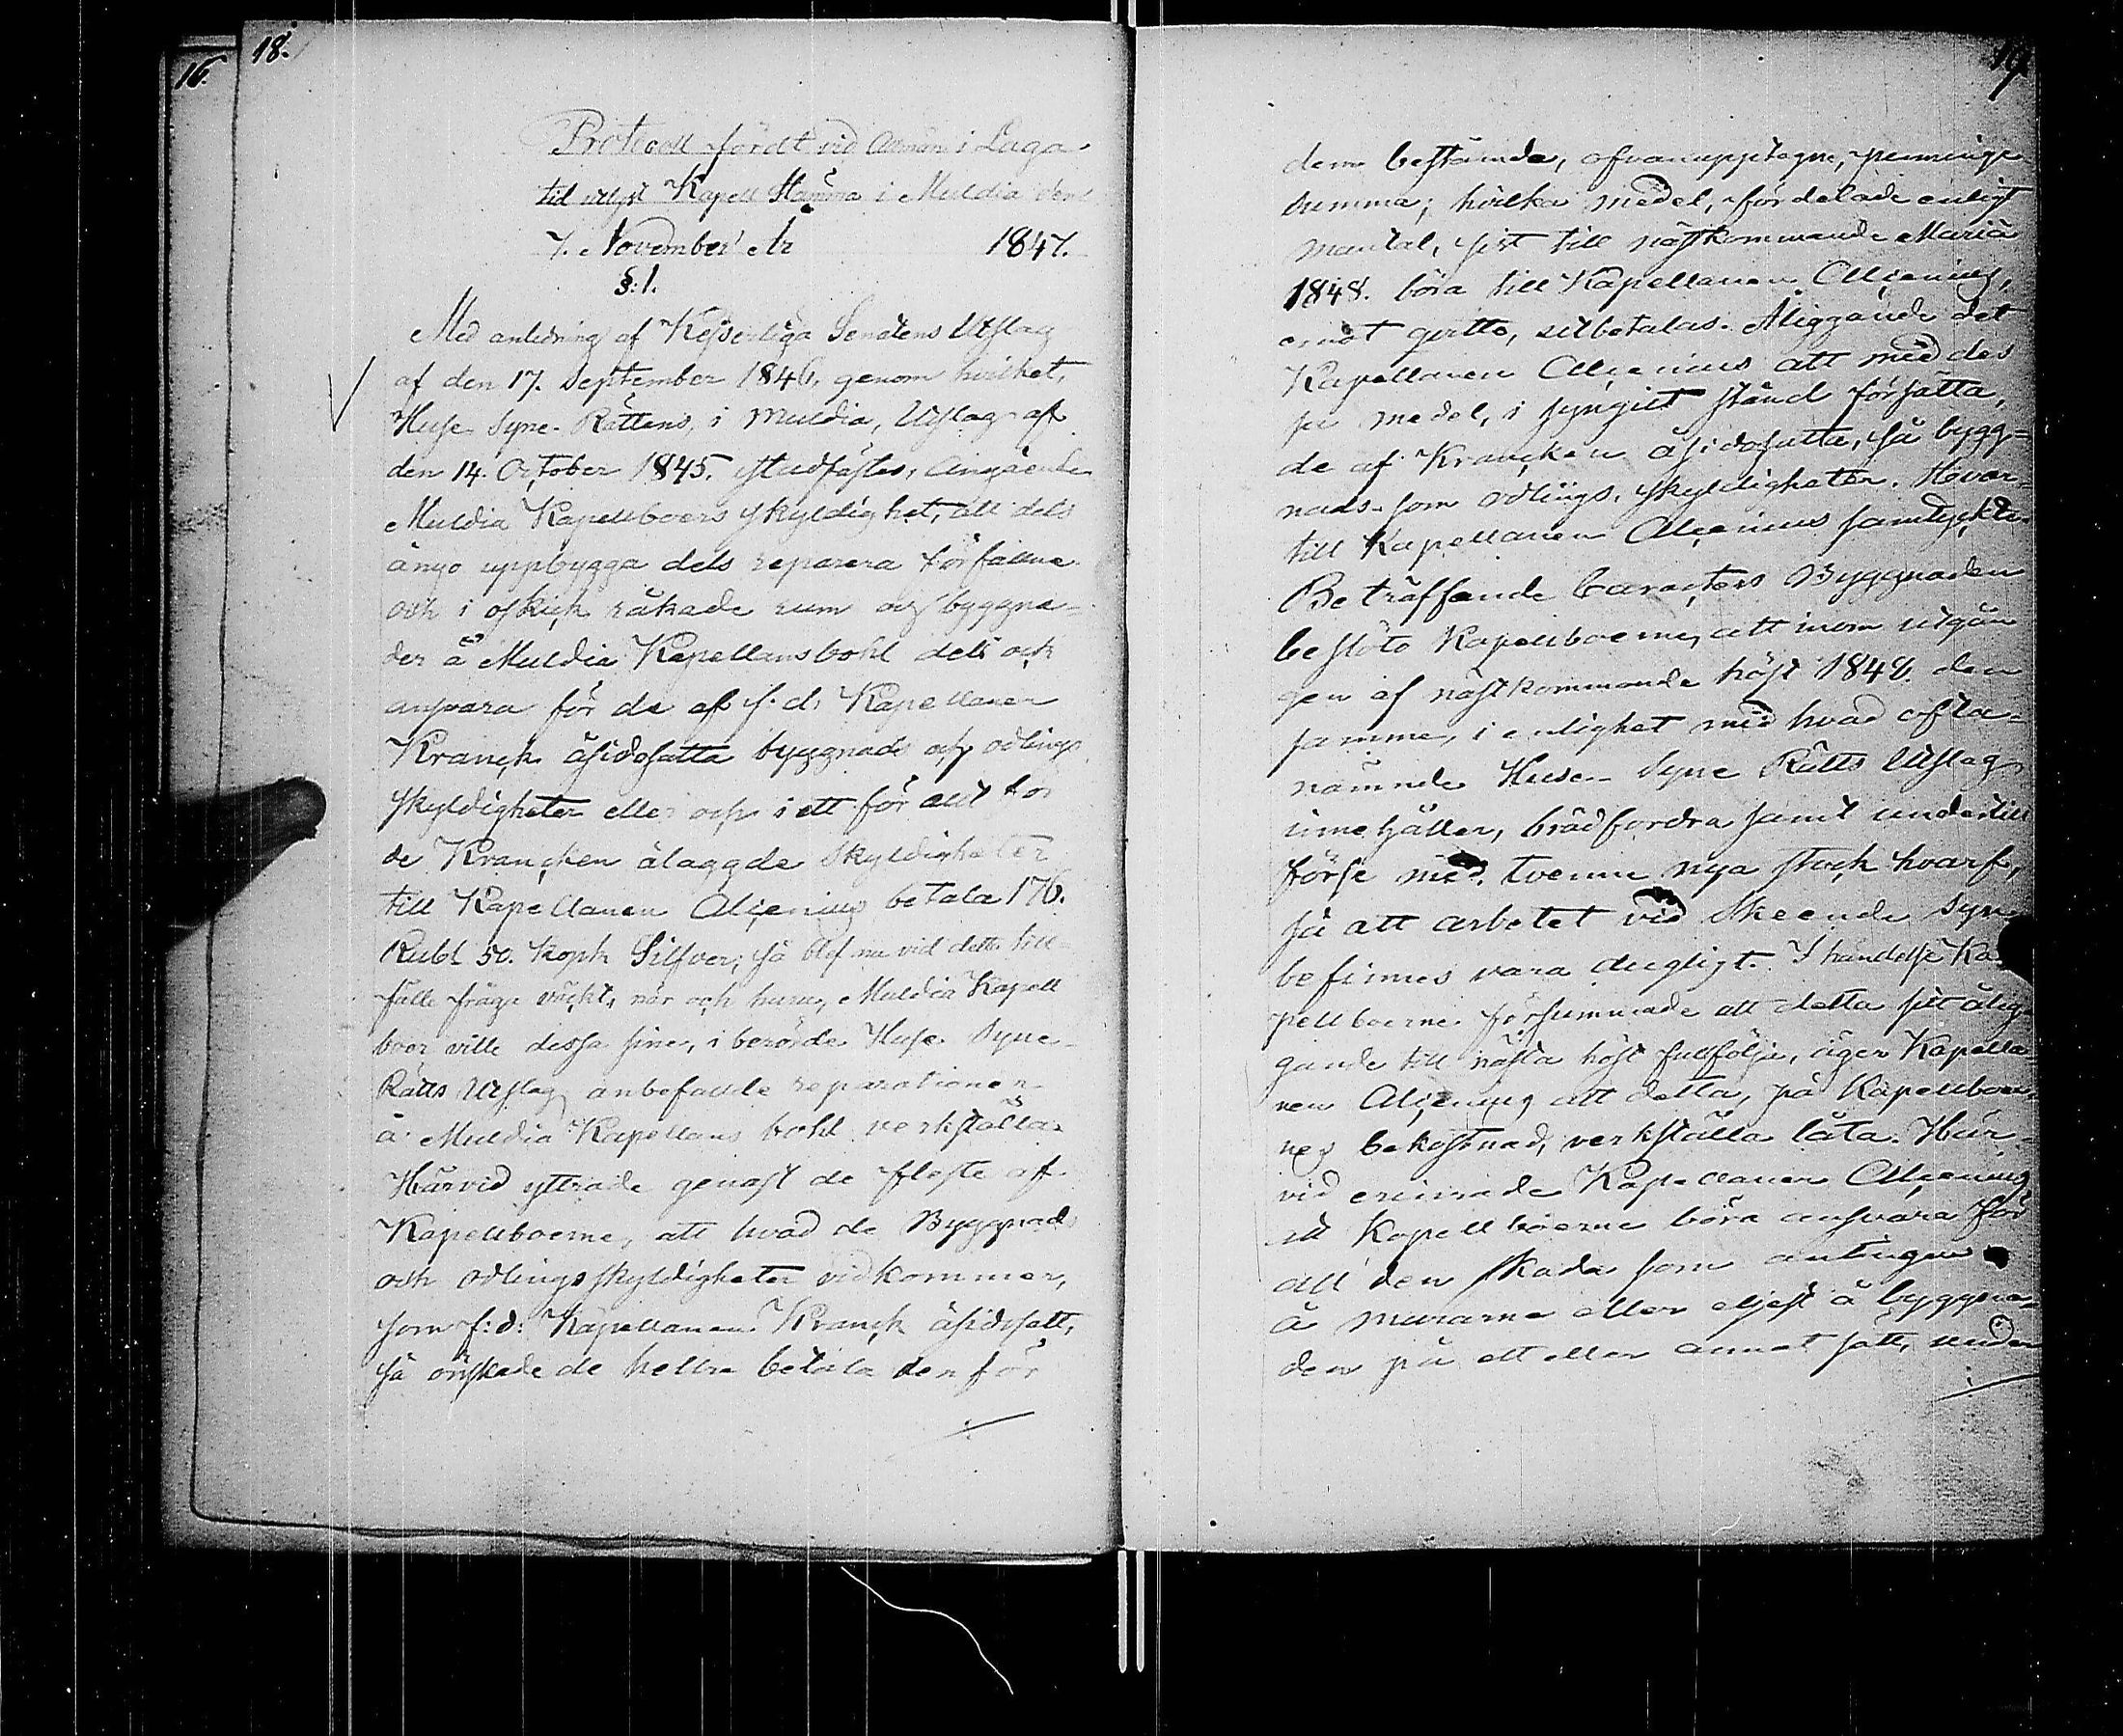 16.
18.
Protocoll fördt vid Allmän i Laga
tid utlyst Kapell Stämma i Muldia den
7. November År 1847.
§. 1.
Med anledning af Kejserliga Senatens Utslag
af den 17. September 1846, genom hvilket,
Huse Syne-Rättens, i Muldia, Utslag af
den 14. October 1845. stadfästes, Angående
Muldia Kapellboers skyldighet, att dels
ånyo uppbygga dels reparera förfallna
och i ofskick råkade rum och byggna-
der å Muldia Kapellansbohl dels och
ansvara för de af f. d. Kapellanen
Kranck åsidosatta byggnads och odlings
skyldigheter eller och i ett för allt för
de Krancken ålaggde Skyldigheter
till Kapellanen Alcenius betala 176.
Rubl 50. Kopk Silfver; så blef nu vid detta till-
fälle fråga väckt, når och huru, Muldia Kapell
boer ville dessa sine, i berörde Huse Syne-
Rätts Utslag anbefallde reparationer
å Muldia Kapellans bohl verkställa.
Härvid yttrade genast de fleste af
Kapellboerne, att hvad de Byggnads
och Odlings skyldigheter vidkommer,
som f: d: Kapellanen Kranck åsidosatt,
så önskade de hellre betala den för
19
dem bestämda, ofvanupptagne, penninge
summa; hvilka medel, fördelade enligt
mantal, sist till nästkommande Maria
1848. böra till Kapellanen Alcenius,
emot qvitto, utbetalas. Åliggande det
Kapellanen Alcenius att med des
se medel, i syngilt stånd försätta,
de af Krancken åsidosatta, så bygg=
nads- som odlings, skyldigheter. Hvar-
till Kapellanen Alcenius samtyckte.
Beträffande Caracters Byggnaden
beslöto Kapellboerne, att inom utgån
gen af nästkommande höst 1848. den
samma, i enlighet med hvad ofta-
nämnde Huse- Syne Rätts Utslag
innehåller, brädfordra samt undertill
förse med tvenne nya stock hvarf,
så att arbetet vid skeende syn
befinnes vara dugligt. I händelse Ka
pellboerne försummade att detta sit ålig
gande till nästa höst fullfölja, äger Kapella=
nen Alcenius att detta, på Kapellboer
nes bekostnad, verkställa låta. Här-
vid erinrade Kapellanen Alcenius
att Kapellboerne böra ansvara för
all den skada som antingen
å murarne eller eljest å byggna-
den på ett eller annat sätt, under